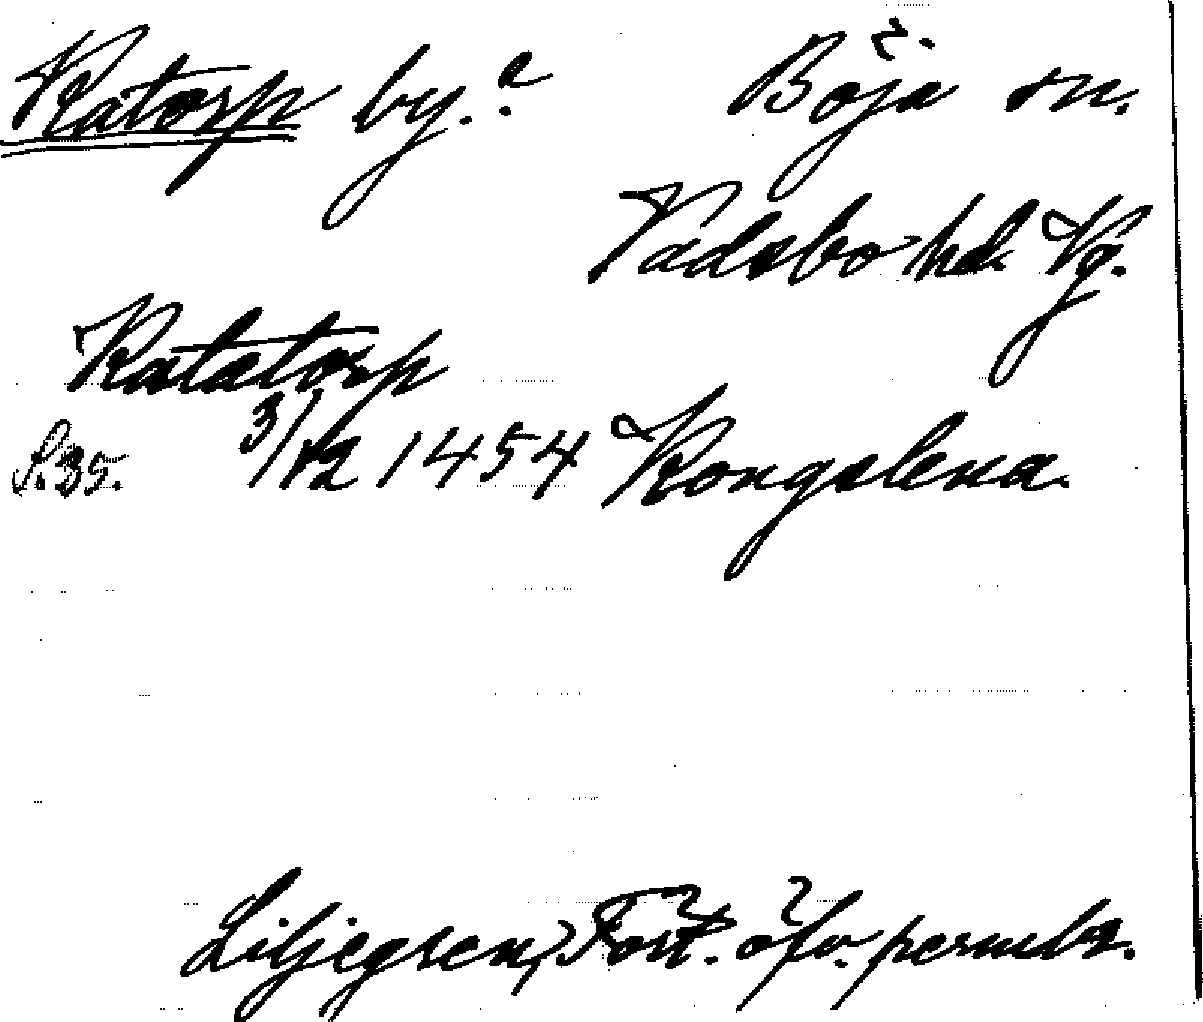 Ratorp by.? Böja sn.
Vadsbo hd. Vg.
Ratatorp
S.35. 3/12 1454 Kongslena.
Liljegren, Fört. öfv. permbr.